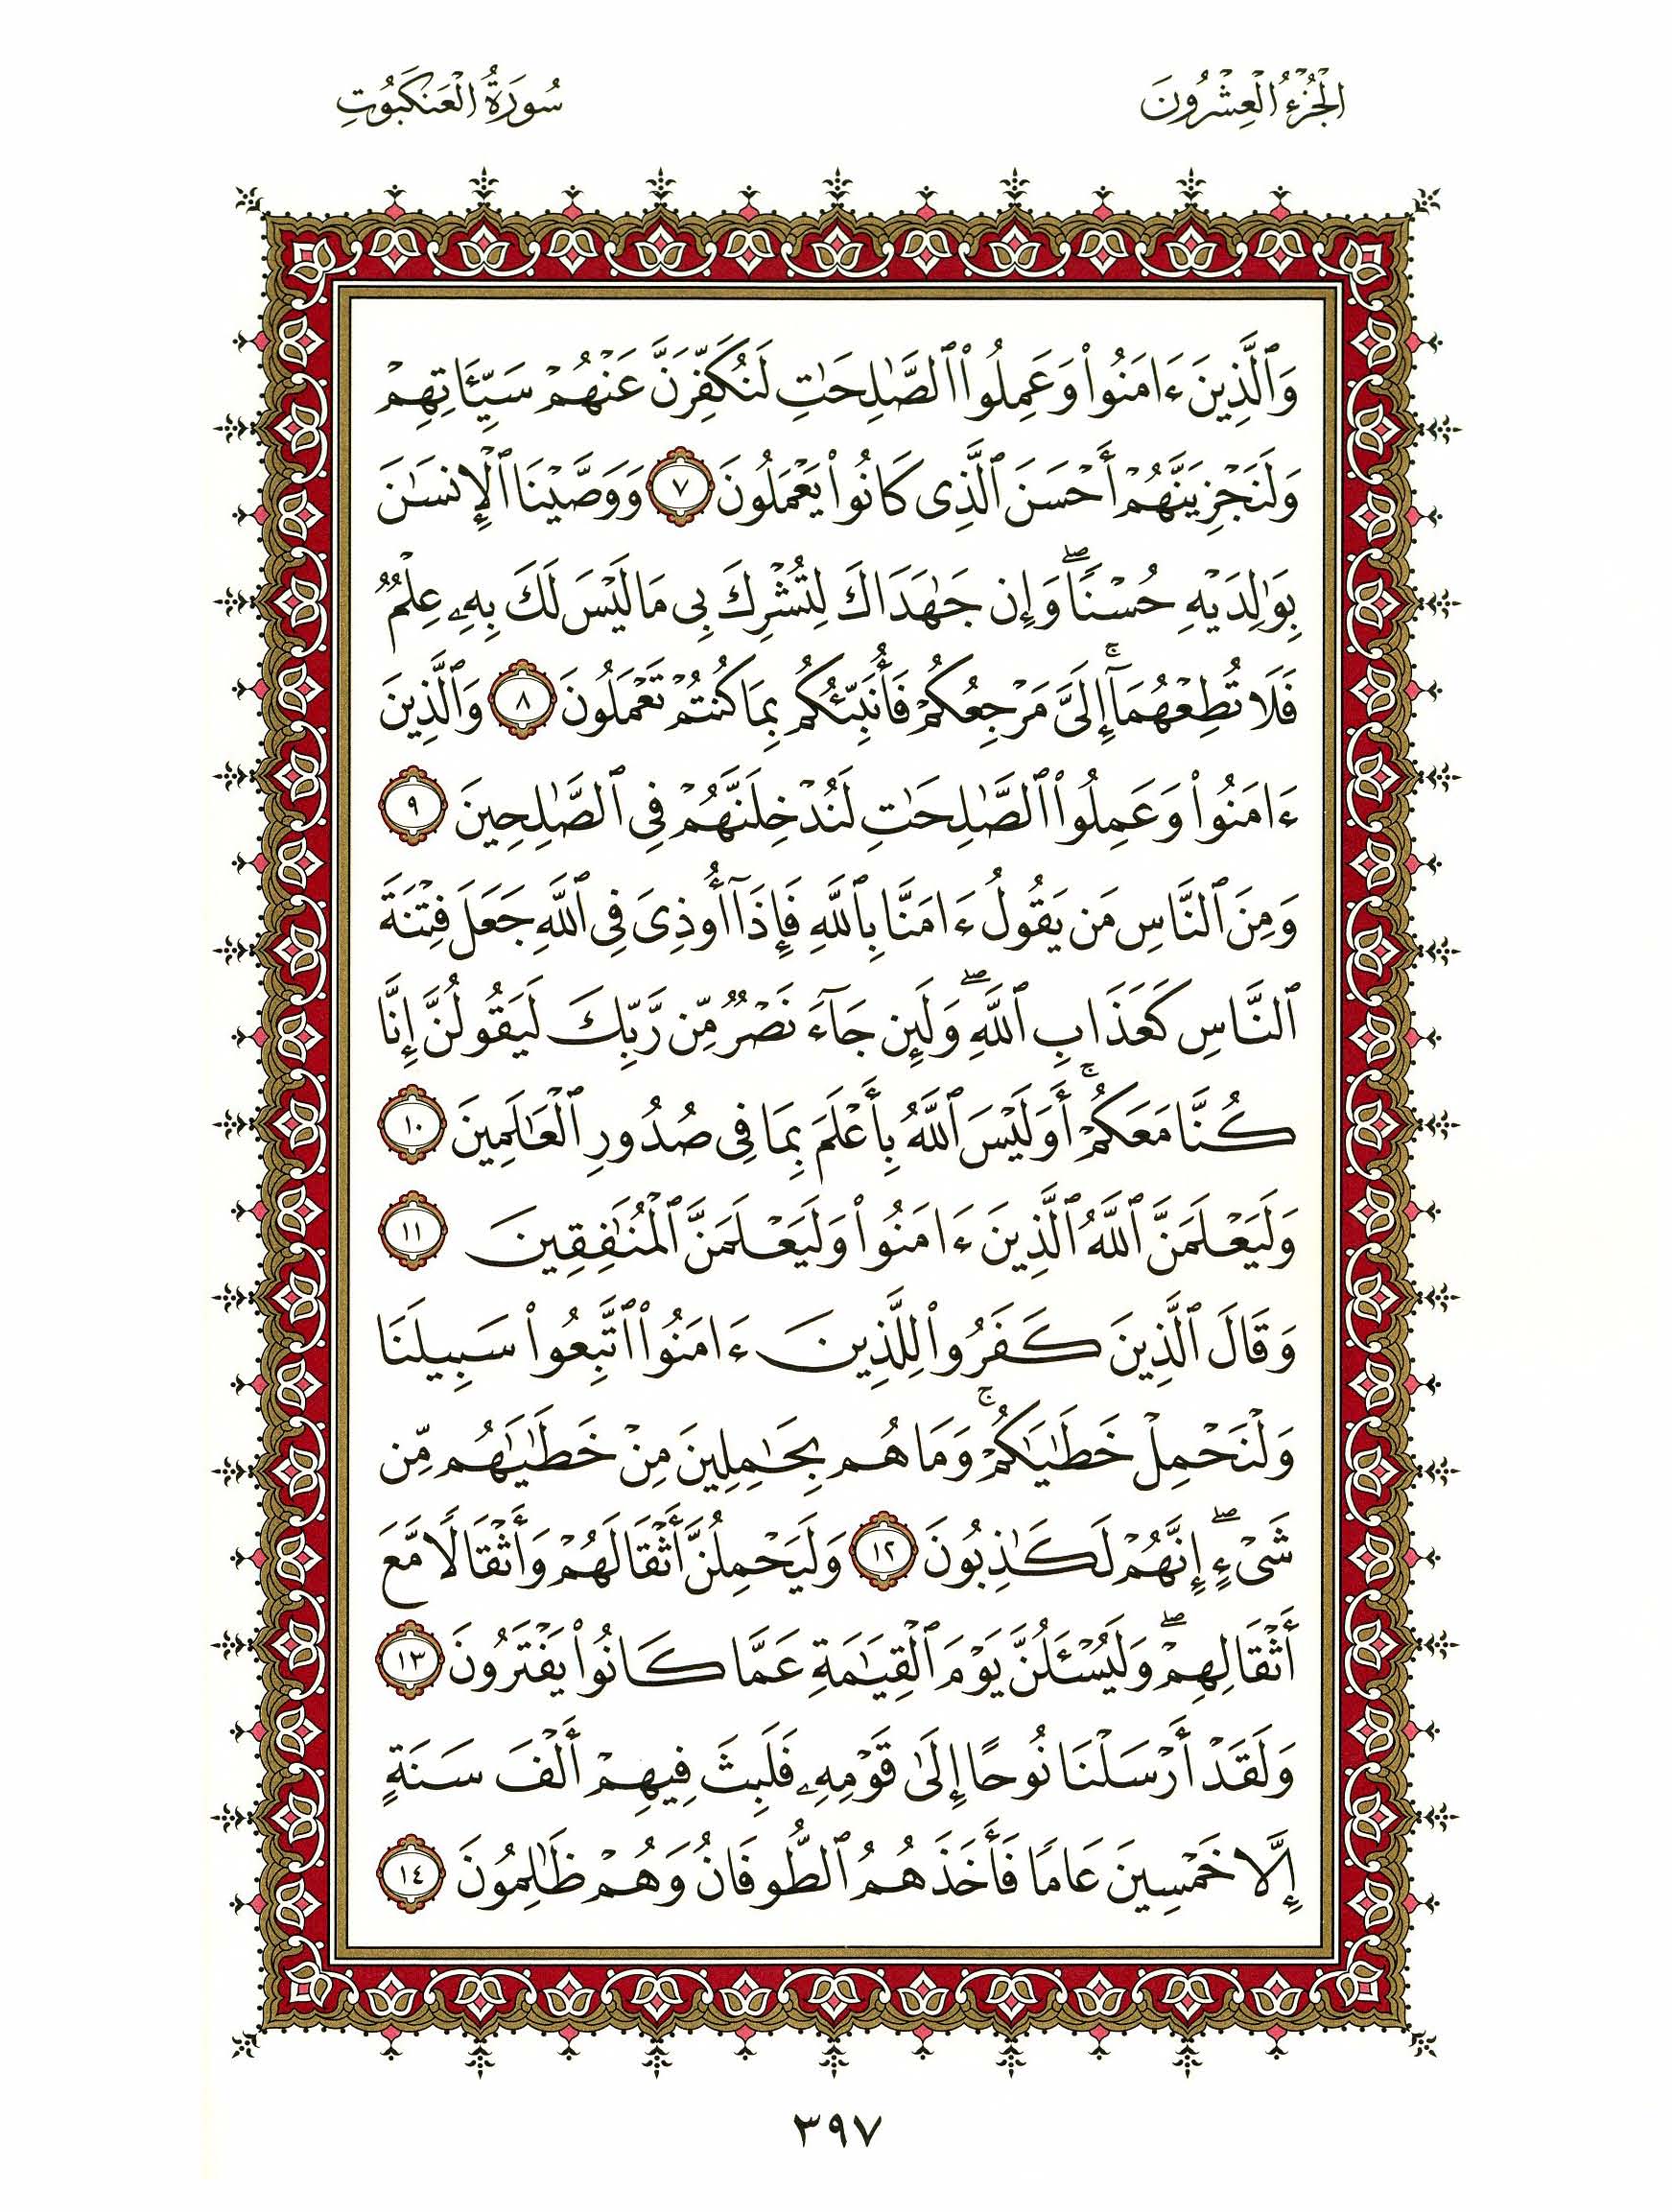 الْجُزْءُ الْعِشْرُونَ
سُورَةُ الْعَنكَبُوتِ
وَٱلَّذِينَ ءَامَنُوا۟ وَعَمِلُوا۟ ٱلصَّـٰلِحَـٰتِ لَنُكَفِّرَنَّ عَنْهُمْ سَيِّـَٔاتِهِمْ
وَلَنَجْزِيَنَّهُمْ أَحْسَنَ ٱلَّذِى كَانُوا۟ يَعْمَلُونَ ٧ وَوَصَّيْنَا ٱلْإِنسَـٰنَ
بِوَٰلِدَيْهِ حُسْنًا ۖ وَإِن جَـٰهَدَاكَ لِتُشْرِكَ بِى مَا لَيْسَ لَكَ بِهِۦ عِلْمٌ
فَلَا تُطِعْهُمَآ ۚ إِلَىَّ مَرْجِعُكُمْ فَأُنَبِّئُكُم بِمَا كُنتُمْ تَعْمَلُونَ ٨ وَٱلَّذِينَ
ءَامَنُوا۟ وَعَمِلُوا۟ ٱلصَّـٰلِحَـٰتِ لَنُدْخِلَنَّهُمْ فِى ٱلصَّـٰلِحِينَ ٩
وَمِنَ ٱلنَّاسِ مَن يَقُولُ ءَامَنَّا بِٱللَّهِ فَإِذَآ أُوذِىَ فِى ٱللَّهِ جَعَلَ فِتْنَةَ
ٱلنَّاسِ كَعَذَابِ ٱللَّهِ ۖ وَلَئِن جَآءَ نَصْرٌ مِّن رَّبِّكَ لَيَقُولُنَّ إِنَّا
كُنَّا مَعَكُمْ ۚ أَوَلَيْسَ ٱللَّهُ بِأَعْلَمَ بِمَا فِى صُدُورِ ٱلْعَـٰلَمِينَ ١٠
وَلَيَعْلَمَنَّ ٱللَّهُ ٱلَّذِينَ ءَامَنُوا۟ وَلَيَعْلَمَنَّ ٱلْمُنَـٰفِقِينَ ١١
وَقَالَ ٱلَّذِينَ كَفَرُوا۟ لِلَّذِينَ ءَامَنُوا۟ ٱتَّبِعُوا۟ سَبِيلَنَا
وَلْنَحْمِلْ خَطَـٰيَـٰكُمْ ۚ وَمَا هُم بِحَـٰمِلِينَ مِنْ خَطَـٰيَـٰهُم مِّن
شَىْءٍ ۖ إِنَّهُمْ لَكَـٰذِبُونَ ١٢ وَلَيَحْمِلُنَّ أَثْقَالَهُمْ وَأَثْقَالًا مَّعَ
أَثْقَالِهِمْ ۖ وَلَيُسْـَٔلُنَّ يَوْمَ ٱلْقِيَـٰمَةِ عَمَّا كَانُوا۟ يَفْتَرُونَ ١٣
وَلَقَدْ أَرْسَلْنَا نُوحًا إِلَىٰ قَوْمِهِۦ فَلَبِثَ فِيهِمْ أَلْفَ سَنَةٍ
إِلَّا خَمْسِينَ عَامًا فَأَخَذَهُمُ ٱلطُّوفَانُ وَهُمْ ظَـٰلِمُونَ ١٤
٣٩٧